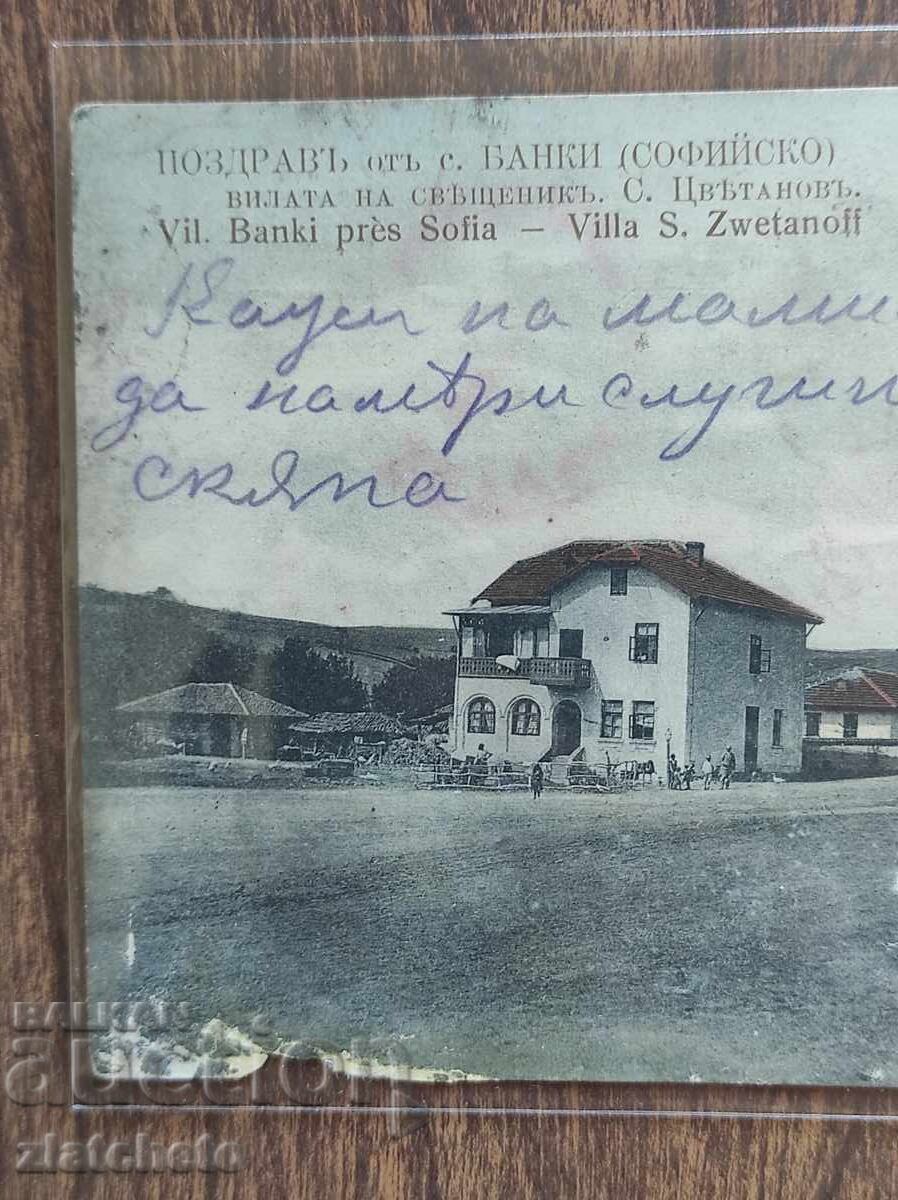 ПОЗДРАВЪ отъ с. БАНКИ (СОФИЙСКО)
ВИЛАТА НА СВѢЩЕНИКЪ. С. ЦВѢТАНОВЪ.
Vil. Banki près Sofia — Villa S. Zwetanoff
на
да намѣри
скяпа
BALKAN
auction
zlatcheto